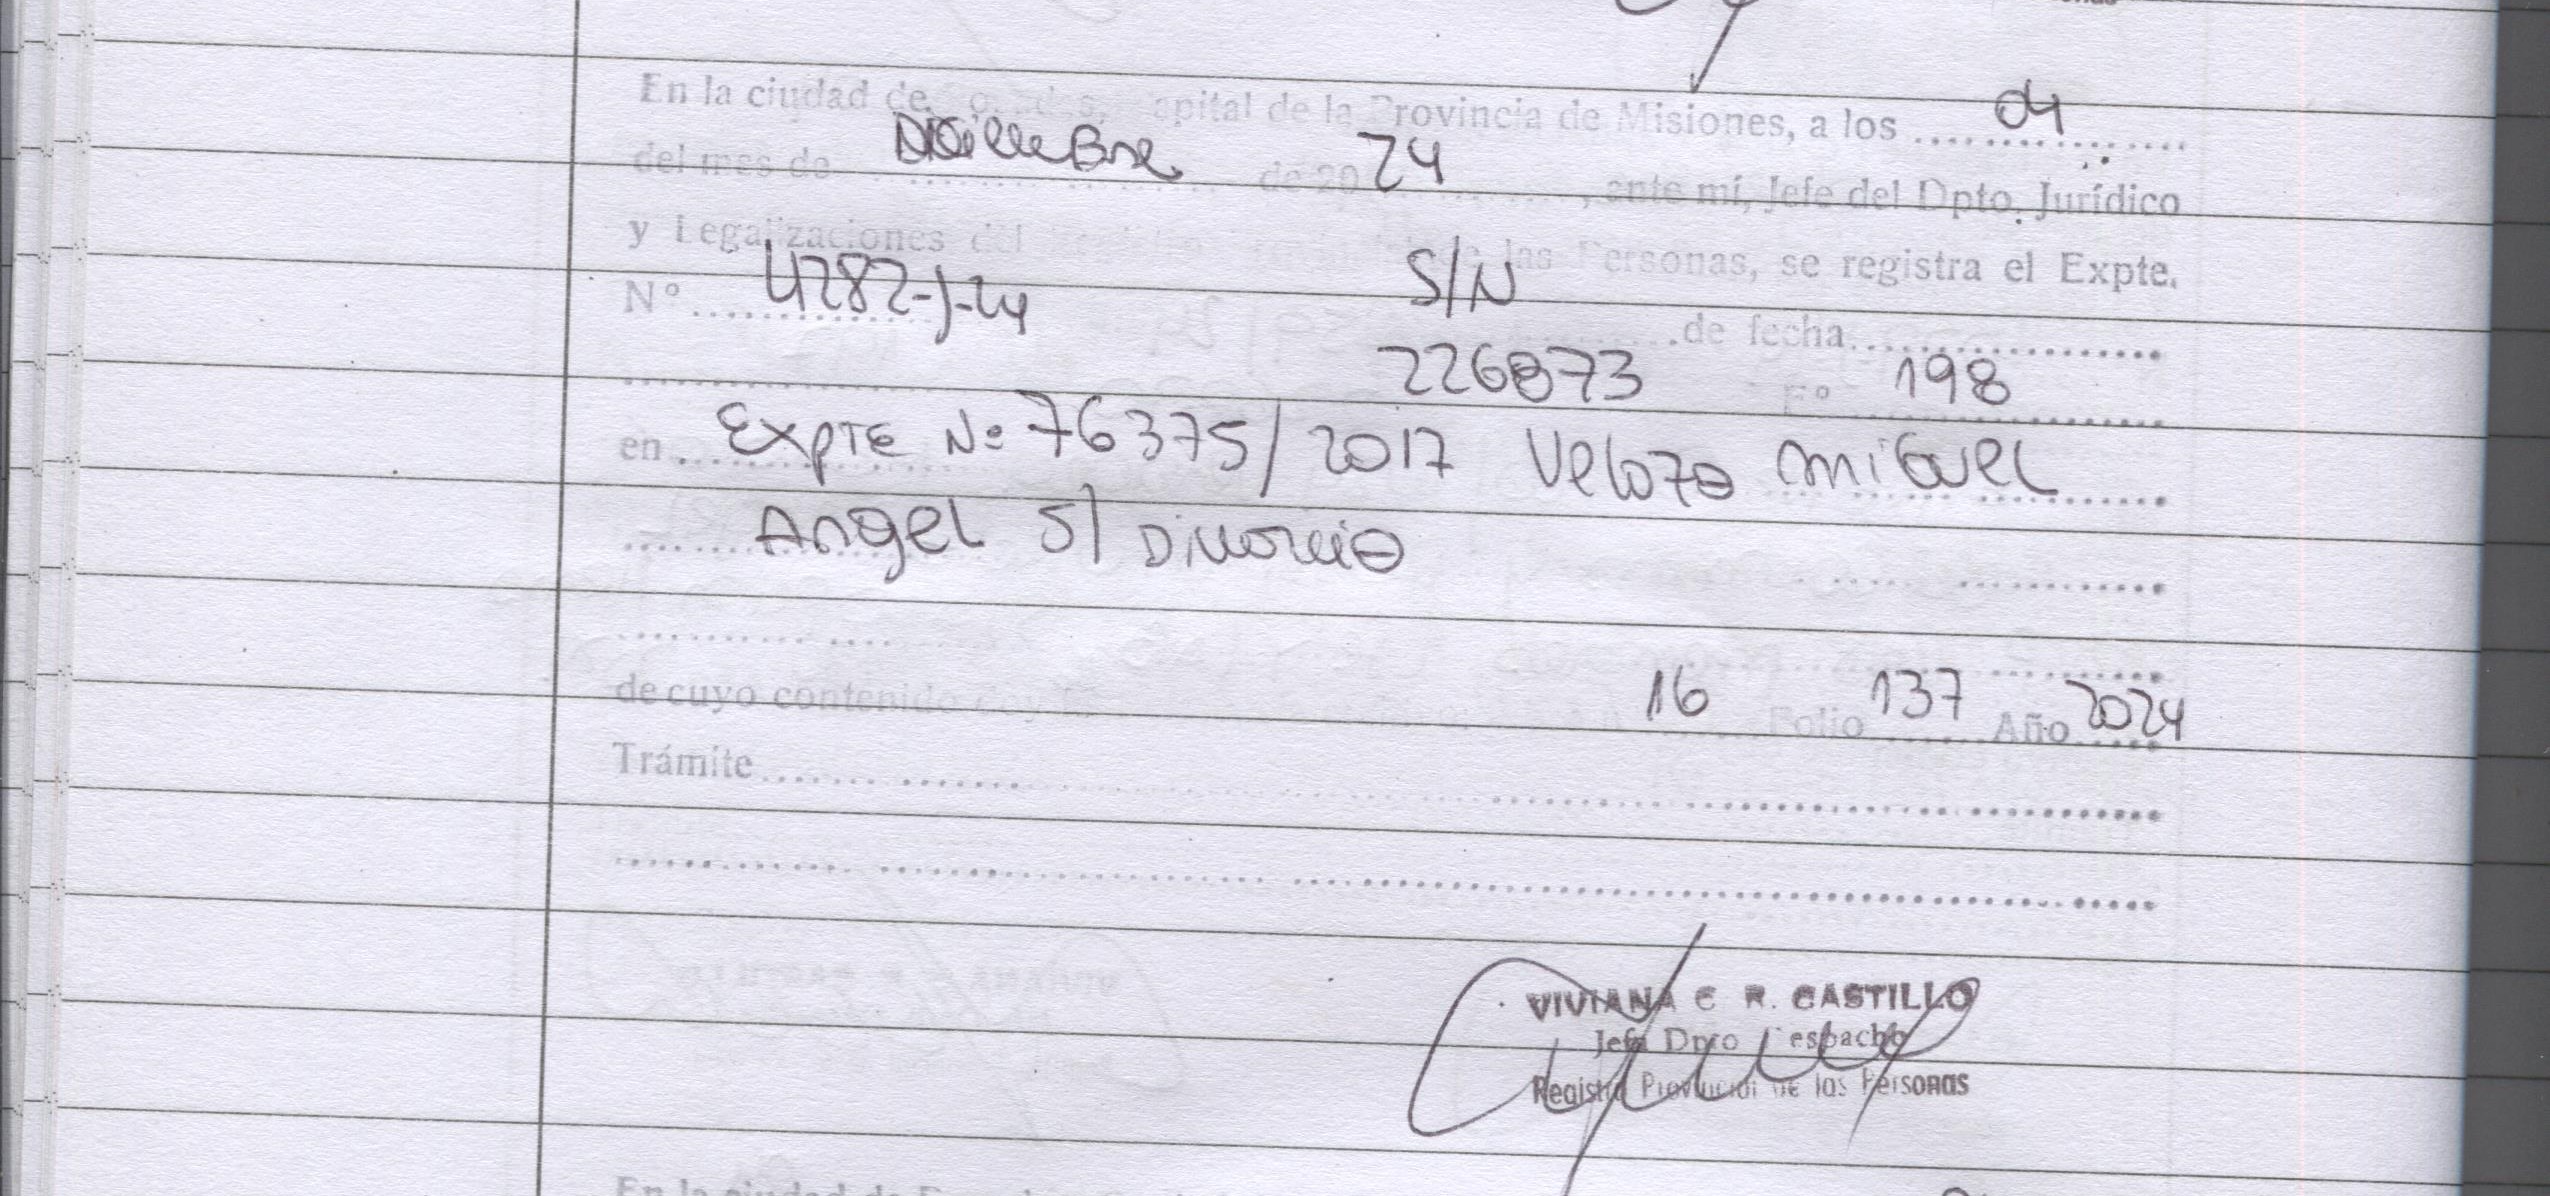 En la ciudad de apital de la Provincia de Misiones, a los 04
del mes de Diciembre de 20 24, ante mí, Jefe del Dpto. Jurídico
y Legalizaciones del las Personas, se registra el Expte.
Nº 4282-J-24 S/N de fecha
226873 Fº 198
en Expte Nº 76375/2017 Velozo Miguel
Angel S/ Divorcio
de cuyo contenido doy 16 Folio 137 Año 2024
Trámite
VIVIANA C R. CASTILLO
Jefa Dpto Despacho
Registro Provincial de las Personas
En la ciudad de